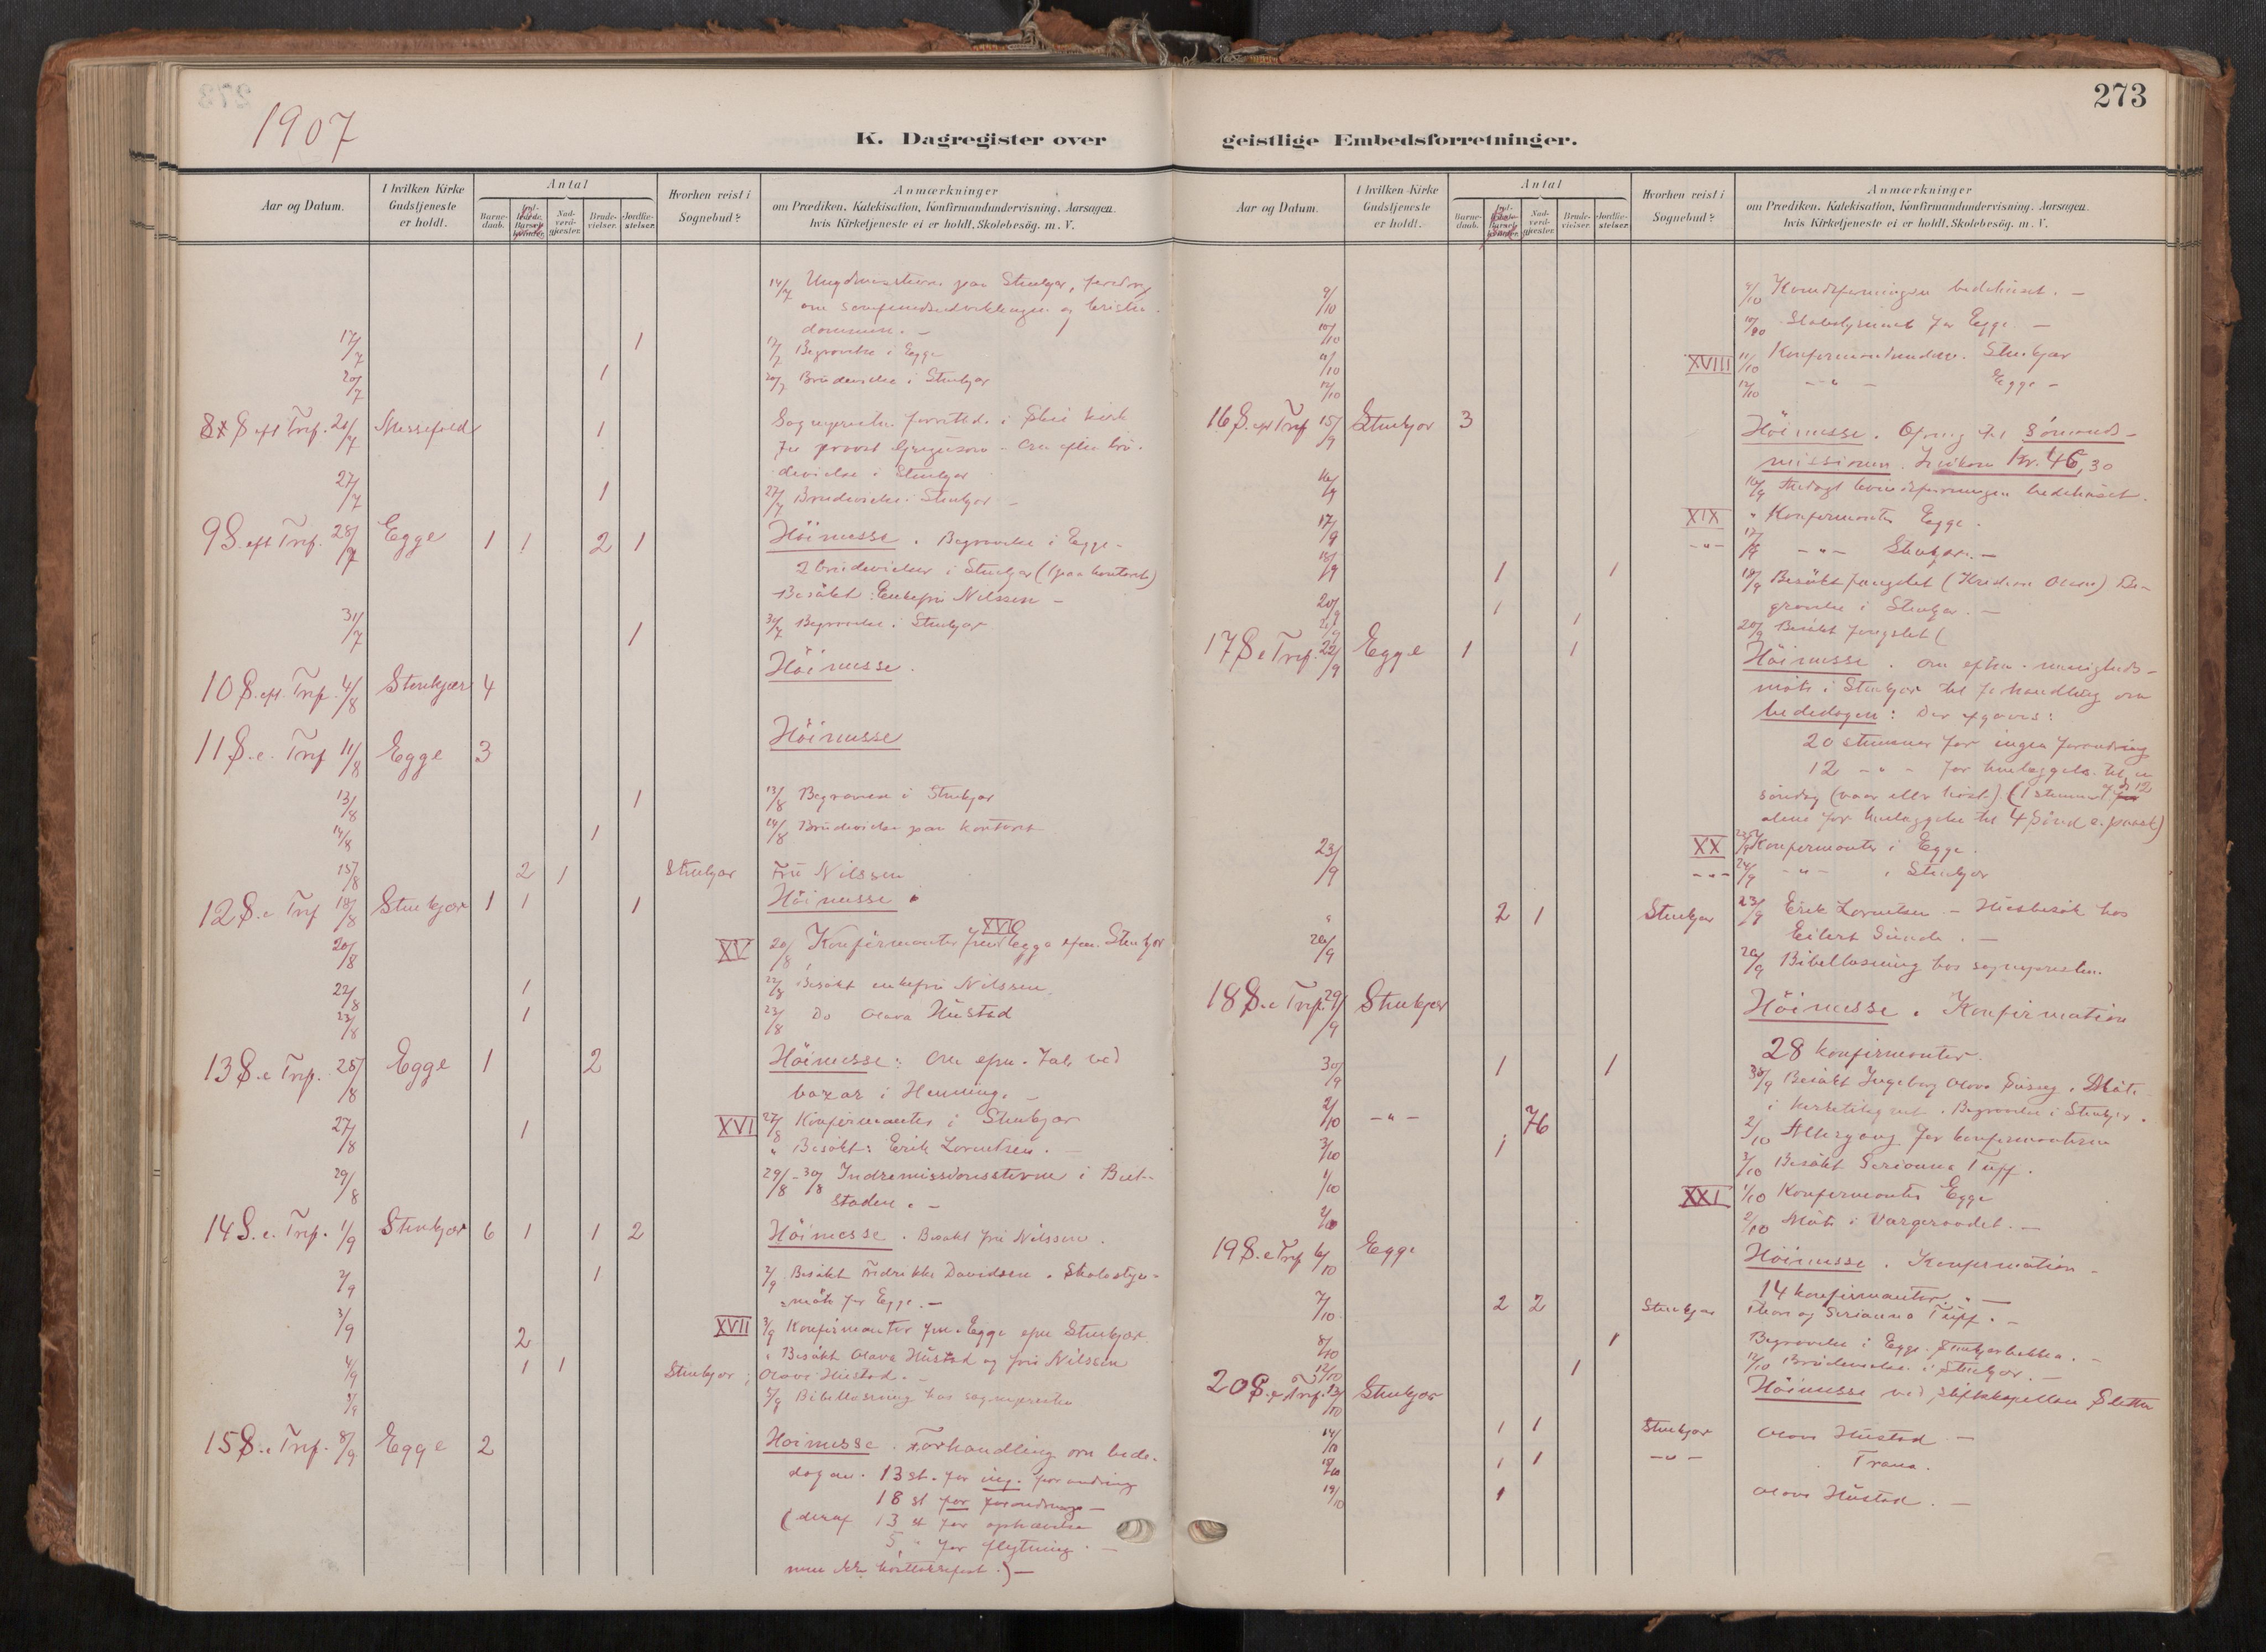 273
1907
K. Dagregister over geistlige Embedsforretninger.
Aar og Datum.
I hvilken Kirke Gudstjeneste er holdt.
Antal
Barne-daab.
Nad-verd-gjæster.
Brude-vielser.
Jordfæ-stelser.
Hvorhen reist i Sognebud?
Anmærkninger
om Prædiken. Katekisation, Konfirmandundervisning. Aarsagen.
hvis Kirketjeneste ei er holdt, Skolebesøg. m. V.
14/7 Ungdomsstevne paa Stenkjær, foredrag
om samfundsudviklingen og kristen-
dommen. –
17/7 1 17/7 Begravelse i Egge
20/7 1 20/7 Brudevielse i Stenkjær
8 S eft Tref. 21/7 Messefald 1 Sognepresten forrettede i
for provst Gregusson –
devielse i Stenkjær
27/7 1 27/7 Brudevielse i Stenkjær –
9 S. eft Tref. 28/7 Egge 1 1 2 1 Höimesse. Begravelse i Egge –
2 brudevielser i Stenkjær (1 paa kontoret)
Besökt: Enkefru Nilssen –
31/7 1 Begravelse i Stenkjær
10 S. eft. Tref. 4/8 Stenkjær 4 Höimesse.
11 S. e. Tref 11/8 Egge 3 Höimesse
13/8 1 13/8 Begravelse i Stenkjær
14/8 1 14/8 Brudevielse paa kontoret
15/8 2 1 Stenkjær Fru Nilssen
12 S. e Tref 18/8 Stenkjær 1 1 1 Höimesse.
20/8 XV 20/8 Konfirmanter fm XVI Egge efm. Stenkjær
22/8 1 22/8 Besökt enkefru Nilssen
23/8 1 23/8 Do Olava Hustad
13 S. e Tref. 25/8 Egge 1 2 Höimesse: efm. Tale ved
bazar i Henning. –
27/8 1 XVI 27/8 Konfirmanter i Stenkjær
" Besökt: Erik Lorentsen. –
29/8 29/8 – 30/8 Indremissionsstevne i Beit-
staden. –
14 S. e. Tref. 1/9 Stenkjær 6 1 1 2 Höimesse. Besökt fru Nilssen.
2/9 1 2/9 Besökt Fredrikke Davidsen. Skolesty-
möte for Egge. –
3/9 2 XVII 3/9 Konfirmanter fm. Egge efm Stenkjær
" Besökt Olava Hustad og fru Nilssen
4/9 1 1 Stenkjær Olava Hustad. –
5/9 5/9 Bibellæsning hos sognepresten
15 S. e Tref. 8/9 Egge 2 Höimesse. Forhandling om bede-
dagen. 13 st. for ing. forandring
18 st for forandring –
(deraf 13 st for ophævelse
5 " for flytning. –
273
Aar og Datum.
I hvilken Kirke Gudstjeneste er holdt.
Antal
Barne-daab.
Nad-verd-gjæster.
Brude-vielser.
Jordfæ-stelser.
Hvorhen reist i Sognebud?
Anmærkninger
om Prædiken. Katekisation, Konfirmandundervisning. Aarsagen.
hvis Kirketjeneste ei er holdt, Skolebesøg. m. V.
9/10 9/10 Kvindeforeningen bedehuset. –
10/10 10/10 for Egge. –
11/10 XVIII 11/10 Konfirmantunderv. Stenkjær
12/10 12/10 – " – Egge –
16 S. eft Tref 15/9 Stenkjær 3 Höimesse. Ofring til Sömands-
missionen. Indkom Kr. 46,30
16/9 16/9 kvindeforeningen bedehuset.
XIX " Konfirmanter Egge.
17/9 – " – 17/9 – " – Stenkjær. –
18/9 1 1 18/9 Besökt fængslet (Kristian Olsen) Be-
gravelse i Stenkjær. –
20/9 1 20/9 Besökt fængslet (
21/9 1
17 S e Tref. 22/9 Egge 1 1 Höimesse. menigheds-
möte i Stenkjær til forhandling om
bededagen: Der afgaves:
20 stemmer for ingen forandring
12 – " – for henlæggelse til en
söndag (vaar eller höst) (1 stemme af de 12
alene for henlæggelse til 4 Sönd e. paask)
23/9 XX 23/9 Konfirmanter i Egge.
– " – 24/9 – " – i Stenkjær
" 2 1 Stenkjær 23/9 Erik Lorentsen – Husbesök hos
Eilert Sunde. –
26/9 26/9 Bibellæsning hos sognepresten.
18 S. e Tref. 29/9 Stenkjær Höimesse. Konfirmation
28 konfirmanter.
30/9 1 1 30/9 Besökt Ingeborg Olava Möte
i Begravelse i Stenkjær.
2/10 – " – 76 2/10 Altergang for konfirmanterne
3/10 1 3/10 Besökt Serianna Tuff.
1/10 XXI 1/10 Konfirmanter Egge
2/10 2/10 Möte i Vergeraadet. –
19 S. e Tref 6/10 Egge Höimesse. Konfirmation –
14 konfirmanter. –
7/10 2 2 Stenkjær og Serianna Tuff. –
8/10 1 Begravelse i Egge. –
12/10 1 12/10 Brudevielse i Stenkjær. –
20 S. e Tref. 13/10 Stenkjær Höimesse ved stiftskapellan Sletten
14/10 1 1 Stenkjær Olava Hustad –
1 1 – " – Trana.
19/10 1 Olava Hustad. –